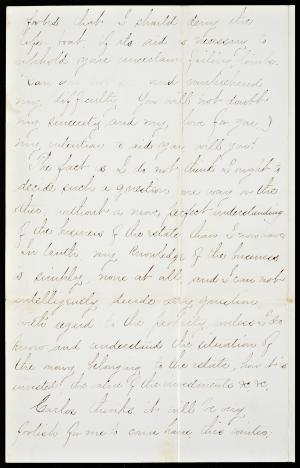 forbid that I should deny the
life boat, if its aid is necessary to
uphold more uncertain failing limbs.
Can and understand
my difficulty. You will not doubt
my sincerity and my love for you, &
my intention to aid you, will you?
The fact is I do not think I ought to
decide such a question one way or the
other, without a more perfect understanding
of the business of the estate than I now have.
In truth my knowledge of the business
is simply, none at all, and I can not
intelligently decide any question
with regard to the property unless I do
know and understand the situation of
the money belonging to the estate, how it is
invested the value of the investments &c &c.
thinks it will be very
foolish for me to come home, this winter,